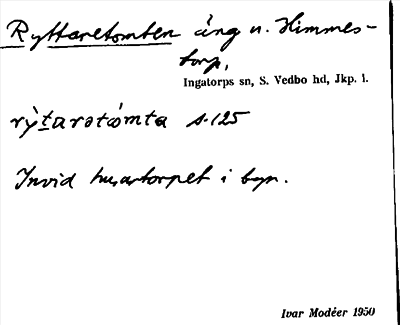 Ryttaretomten äng u. Himmes-
torp,
Ingatorps sn, S. Vedbo hd, Jkp. l.
rỳtarətómta s. 125
Invid husartorpet i byn.
Ivar Modéer 1950